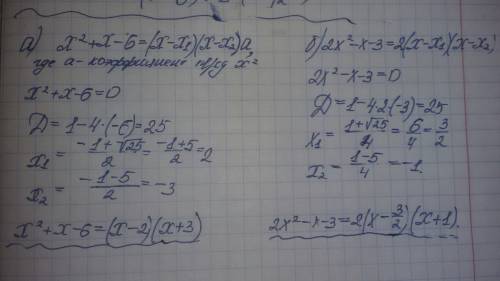 а) x²+x-6=(x-x₁)(x-x₂)a,
где a- коэффициент перед x²
x²+x-6=0
D=1-4·(-6)=25
x₁ = (-1+√25)/2 = (-1+5)/2 = 2
x₂ = (-1-5)/2 = -3
x²+x-6=(x-2)(x+3)
б) 2x²-x-3=2(x-x₁)(x-x₂)
2x²-x-3=0
D=1-4·2·(-3)=25
x₁ = (1+√25)/4 = 6/4 = 3/2
x₂ = (1-5)/4 = -1.
2x²-x-3=2(x-3/2)(x+1).